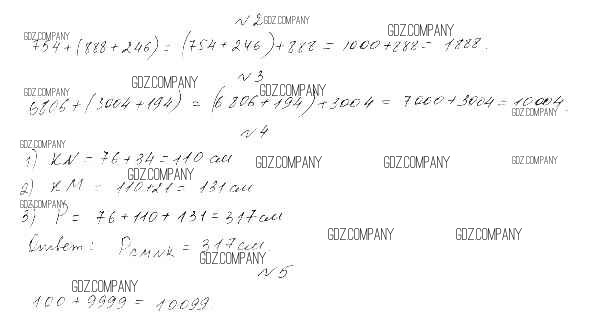 №2 GDZ.COMPANY
GDZ.COMPANY GDZ.COMPANY
754+(888+246) = (754+246)+888 = 1000+888 = 1888.
GDZ.COMPANY №3
GDZ.COMPANY GDZ.COMPANY
6806+(3004+194) = (6806+194)+3004 = 7000+3004 = 10004.
GDZ.COMPANY
№4
GDZ.COMPANY
1) KN = 76+34 = 110 см
GDZ.COMPANY GDZ.COMPANY GDZ.COMPANY
GDZ.COMPANY
2) KM = 110+21 = 131 см
GDZ.COMPANY
3) P = 76+110+131 = 317 см
GDZ.COMPANY GDZ.COMPANY
Ответ: = 317 см.
GDZ.COMPANY
№5
GDZ.COMPANY
100 + 9999 = 10099